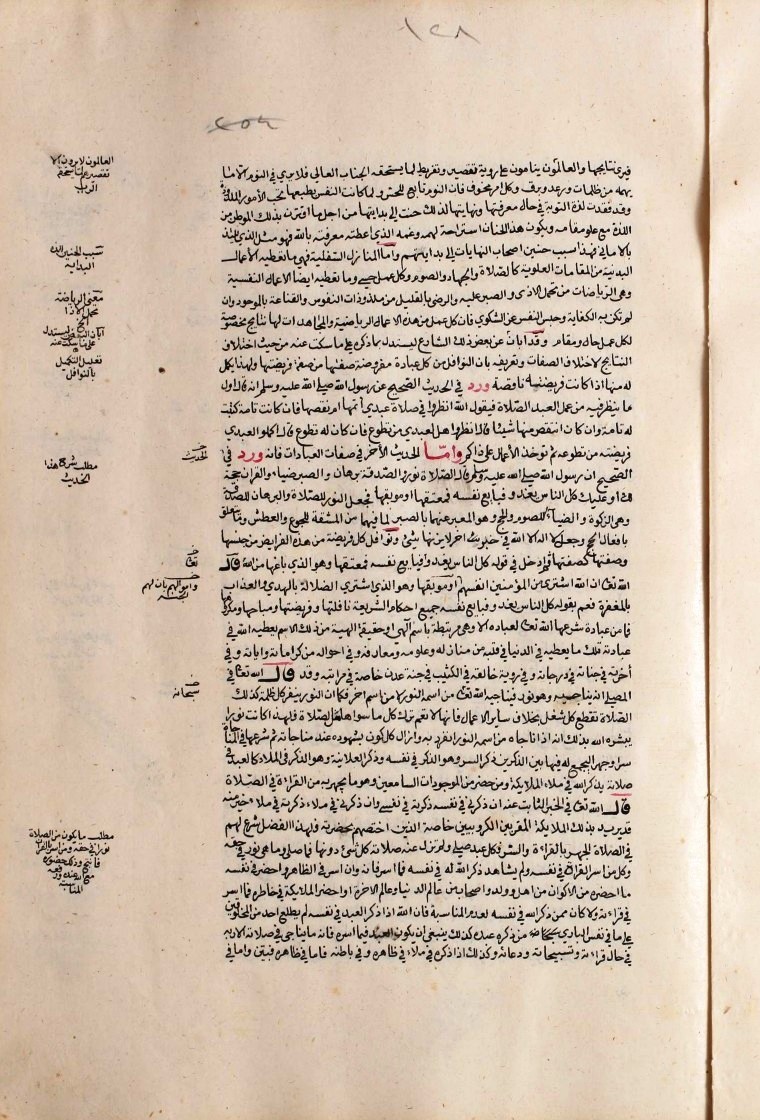 ١٤٨
٤٥٢
فيرى نتايجها والعالمون ينامون على رؤية تقصير وتفريط لما يستحقه الجناب العالي فلا يرى في النوم الا ما
يهمه من ظلمات ورعد وبرق وكل امر مخوف فان النوم تابع للحس ولما كانت النفس بطبعها تحب الأمور
وقد فقدت لذة التوبة في حال معرفتها ونهايتها لذلك حنت إلى بدايتها من اجل ما اقترن بذلك الموطن من
اللذة مع علو مقامه ويكون هذا الحنان استراحة لهمه وغمه الذي اعطته معرفته بالله فهو مثل الذي يلتذ
بالاماني فهذا سبب حنين اصحاب النهايات إلى بدايتهم واما المنازل السفلية فهي ما تعطيه الأعمال
البدنية من المقامات العلوية كالصلاة والجهاد والصوم وكل عمل حسي وما تعطيه ايضا الاعمال النفسية
وهي الرياضات من تحمل الاذى والصبر عليه والرضى بالقليل من ملذوذات النفوس والقناعة بالموجود وان
لم تكن به الكفاية وحبس النفس عن الشكوى فان كل عمل من هذه الاعمال الرياضية والمجاهدات لها نتايج مخصوصة
لكل عمل حال ومقام وقد ابان عن بعض ذلك الشارع ليستدل بما ذكره على ما سكت عنه من حيث اختلاف
النتائج لاختلاف الصفات وتعريفه بان النوافل من كل عبادة مفروضة صفتها من صفة فريضتها ولهذا تكمل
له منها اذا كانت فريضته ناقصة ورد في الحديث الصحيح عن رسول الله صلى الله عليه وسلم انه قال اول
ما ينظر فيه من عمل العبد الصلاة فيقول الله انظروا في صلاة عبدي اتمها ام نقصها فان كانت تامة كتبت
له تامة وان كان انتقص منها شيئا قال انظروا هل لعبدي من تطوع فان كان له تطوع قال اكملوا لعبدي
فريضته من تطوعه ثم توخذ الأعمال على ذاكم واما الحديث الآخر في صفات العبادات فانه ورد في
الصحيح ان رسول الله صلى الله عليه وسلم قال الصلاة نور والصدقة برهان والصبر ضياء والقران حجة
لك او عليك كل الناس يغدو فبايع نفسه فمعتقها او موبقها فجعل النور للصلاة والبرهان للصدقة
وهي الزكوة والضياء للصوم والحج وهو المعبر عنهما بالصبر لما فيهما من المشقة للجوع والعطش وما يتعلق
بافعال الحج وجعل لا اله الا الله في خبر آخر لا يزنها شئ ونوافل كل فريضة من هذه الفرايض من جنسها
وصفتها كصفتها ثم ادخل في قوله كل الناس يغدو فبايع نفسه فمعتقها وهو الذي باعها من الله قال
الله تعالى ان الله اشترى من المؤمنين انفسهم او موبقها وهو الذي اشترى الضلالة بالهدى والعذاب
بالمغفرة فعم بقوله كل الناس يغدو فبايع نفسه جميع احكام الشريعة نافلتها وفريضتها ومباحها ومكروهها
فما من عبادة شرعها الله تعالى لعباده الا وهي مرتبطة باسم الهي او حقيقة الهية من ذلك الاسم يعطيه الله في
عبادته تلك ما يعطيه في الدنيا في قلبه من منازله وعلومه ومعارفه وفي احواله من كراماته واياته وفي
اخرته في جناته في درجاته وفي رؤية خالقه في الكثيب في جنة عدن خاصة في مراتبه وقد قال الله تعالى في
المصلي انه يناجيه وهو نور فيناجيه الله تعالى من اسمه النور لا من اسم اخر فكما ان النور ينفر كل ظلمة كذلك
الصلاة تقطع كل شغل بخلاف ساير الاعمال فانها لا تعم ترك كل ما سواها مثل الصلاة فلهذا كانت نورا
يبشره الله بذلك انه اذا ناجاه من اسمه النور انفرد به وازال كل كون بشهوده عند مناجاته ثم شرعها في المناجاة
سرا وجهرا ليجمع له فيها بين الذكرين ذكر السر وهو الذكر في نفسه وذكر العلانية وهو الذكر في الملاء كالعبد في
صلاته يذكر الله في ملاء الملايكة ومن حضر من الموجودات السامعين وهو ما يجهر به من القراءة في الصلاة
قال الله تعالى في الخبر الثابت عنه ان ذكرني في نفسه ذكرته في نفسي وان ذكرني في ملاء ذكرته في ملاء خير منه
قد يريد بذلك الملايكة المقربين الكروبيين خاصة الذين اختصهم بحضرته فلهذا الفضل شرع لهم
في الصلاة الجهر بالقراءة والسر فكل عبد صلى ولم تزل عنه صلاته كل شئ دونها فما صلى وما هي نور في حقه
وكل من اسر القراة في نفسه ولم يشاهد ذكر الله له في نفسه فما اسر فانه وان اسر في الظاهر واحضر في نفسه
ما احضره من الاكوان من اهل وولد واصحاب من عالم الدنيا وعالم الاخرة او احضر الملايكة في خاطره فما اسر
في قراءته ولا كان ممن ذكر الله في نفسه لعدم المناسبة فان الله اذا ذكر العبد في نفسه لم يطلع احد من المخلوقين
على ما في نفس الباري من ذكره عبده كذلك ينبغي ان يكون العبد فيما اسره فانه ما يناجي في صلاته الا ربه
في حال قراءته وتسبيحاته ودعائه وكذلك اذا ذكره في ملاء في ظاهره وفي باطنه فاما في ظاهره فبين واما في
العالمون لا يرون الا
تقصيرهم عما يستحقه
الرب
سبب الحنين الى
البداية
معنى الرياضة
تحمل الاذا
ابان الشارع ليستدل
على ما سكت عنه
تعليل التكميل
بالنوافل
الحديث
مطلب شرح هذا
الحديث
تعالى
سبحانه
مطلب ما يكون من الصلاة
نورا في حقه ومن اسر بالقران